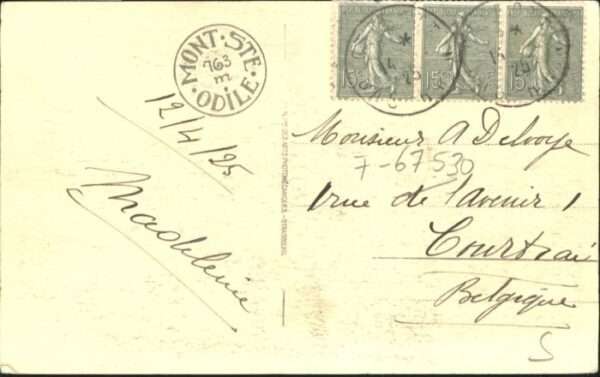 MONT · STE
763
m
· ODILE ·
12/4/25
Madeleine
15c
15c
15
Monsieur A Delvoye
7-67530
1 rue de l'avenir 1
Courtrai
Belgique
5